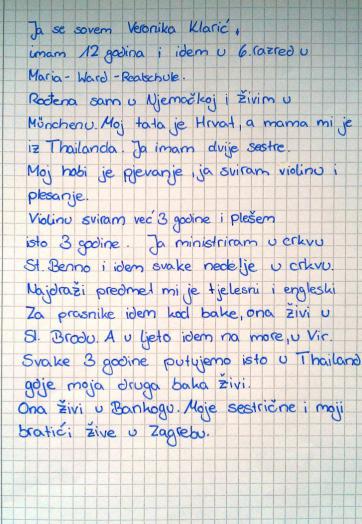 Ja se sovem Veronika Klarić,
imam 12 godina i idem u 6.razred u
Maria-Ward-Realschule.
Rođena sam u Njemačkoj i živim u
Münchenu. Moj tata je Hrvat, a mama mi je
iz Thailanda. Ja imam dvije sestre.
Moj hobi je pjevanje, ja sviram violinu i
plesanje.
Violinu sviram već 3 godine i plešem
isto 3 godine. Ja ministriram u crkvu
St. Benno i idem svake nedelje u crkvu.
Najdraži predmet mi je tjelesni i engleski
Za prasnike idem kod bake, ona živi u
Sl. Brodu. A u ljeto idem na more, u Vir.
Svake 3 godine putujemo isto u Thailand
gdje moja druga baka živi.
Ona živi u Bankogu. Moje sestrične i moji
bratići žive u Zagrebu.